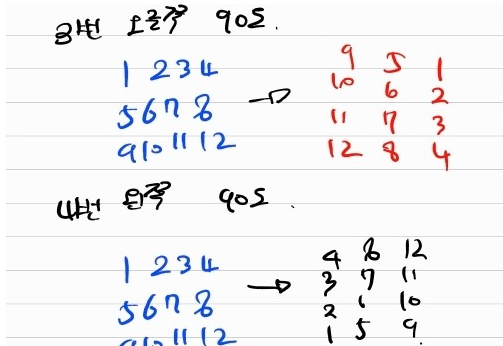 3번 오른쪽 90도.
1 2 3 4
5 6 7 8
9 10 11 12
→
9 5 1
10 6 2
11 7 3
12 8 4
4번 왼쪽 90도.
1 2 3 4
5 6 7 8
9 10 11 12
→
4 8 12
3 7 11
2 6 10
1 5 9